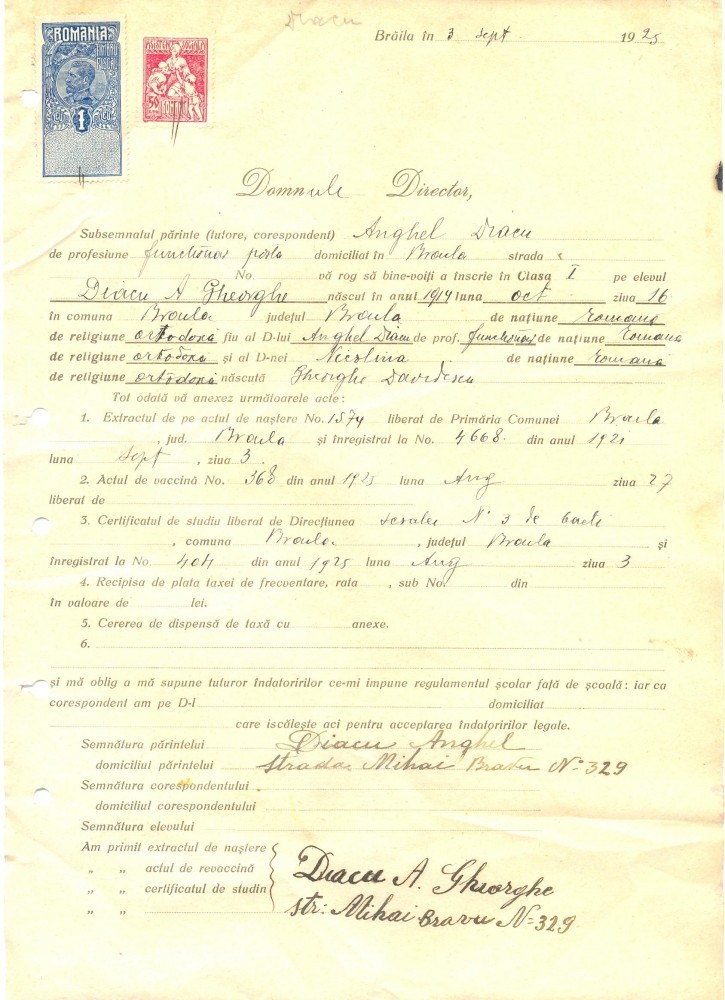 Diacu
Brăila în 3 sept 1925
ROMANIA
TIMBRU FISCAL
1
50
ROMÂNIA
Domnule Director,
Subsemnatul părinte (tutore, corespondent) Anghel Diacu
de profesiune functionar posta domiciliat în Braila strada
No. vă rog să bine-voiți a înscrie în Clasa I pe elevul
Diacu A Gheorghe născut în anul 1914 luna oct ziua 16
în comuna Braila județul Braila de națiune romana
de religiune ortodoxa fiu al D-lui Anghel Diacu de prof. functionar de națiune romana
de religiune ortodoxa și al D-nei Nicolina de națiune romana
de religiune ortodoxa născută Gheorghe Davidescu
Tot odată vă anexez următoarele acte :
1. Extractul de pe actul de naștere No. 1574 liberat de Primăria Comunei Braila
, jud. Braila și înregistrat la No. 4668 din anul 1921
luna sept, ziua 3.
2. Actul de vaccină No. 368 din anul 1925 luna Aug ziua 27
liberat de
3. Certificatul de studiu liberat de Direcțiunea scoalei No 3 de baeti
, comuna Braila, județul Braila și
înregistrat la No. 404 din anul 1925 luna Aug ziua 3
4. Recipisa de plata taxei de frecventare, rata , sub No. din
în valoare de lei.
5. Cererea de dispensă de taxă cu anexe.
6.
și mă oblig a mă supune tuturor îndatoririlor ce-mi impune regulamentul școlar față de școală : iar ca
corespondent am pe D-l domiciliat
care iscălește aci pentru acceptarea îndatoririlor legale.
Semnătura părintelui Diacu Anghel
domiciliul părintelui strada Mihai Bravu No 329
Semnătura corespondentului
domiciliul corespondentului
Semnătura elevului
Am primit extractul de naștere
„ „ actul de revaccină
„ „ certificatul de studiu
„ „
Diacu A. Gheorghe
str: Mihai Bravu No 329